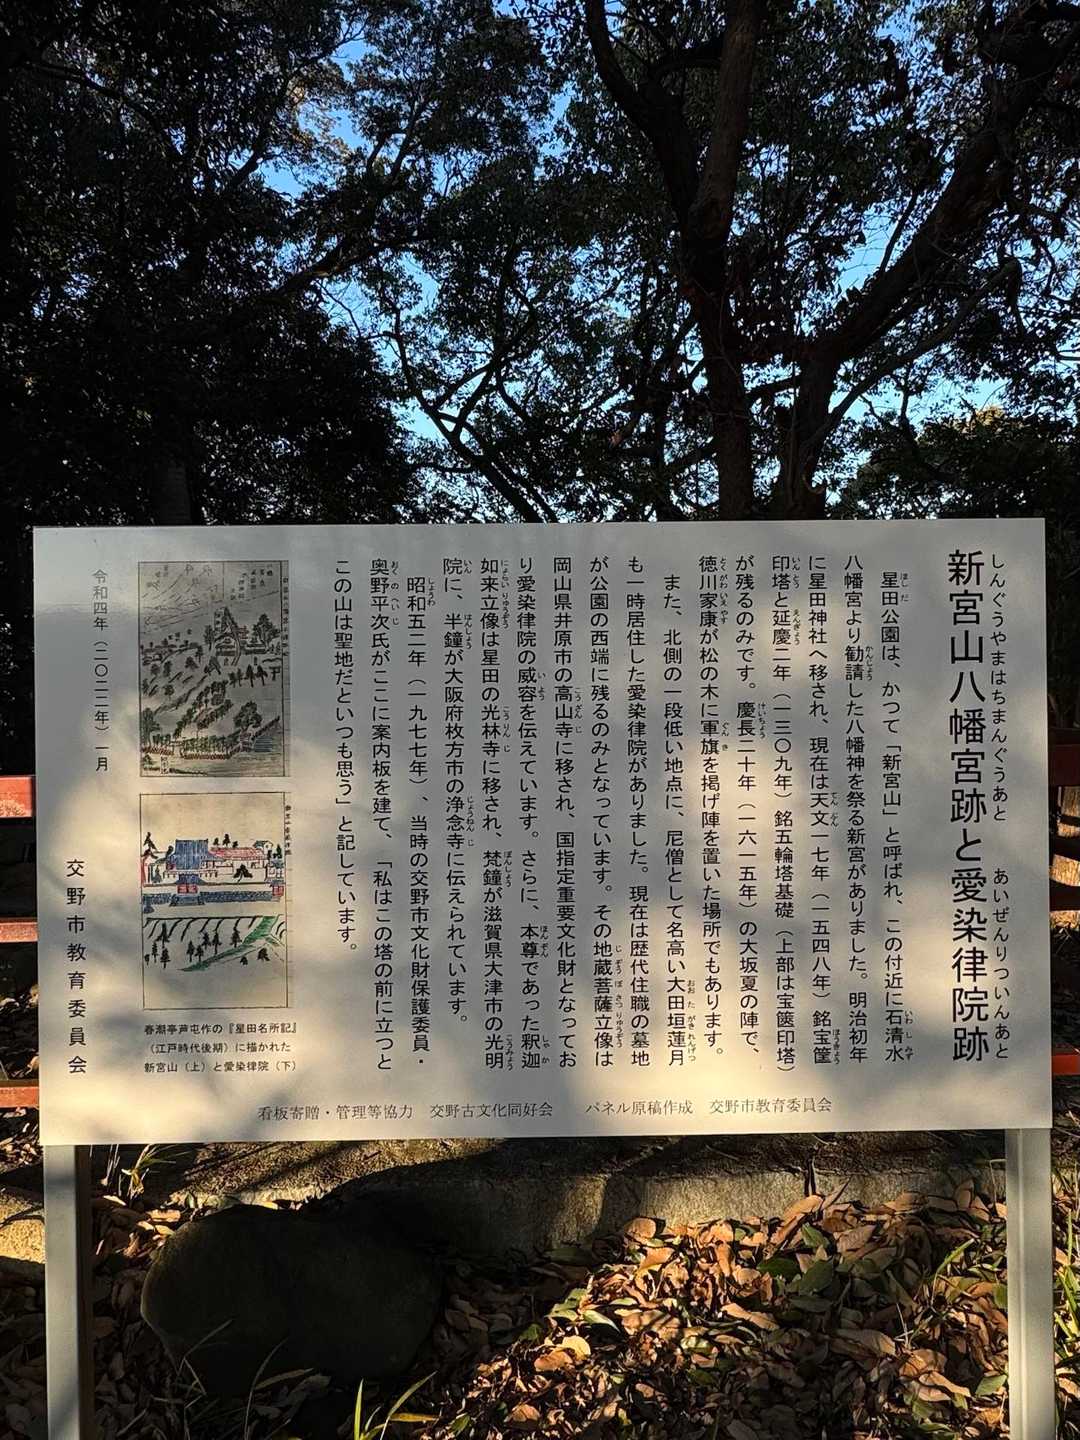 新宮山八幡宮跡と愛染律院跡
しんぐうやまはちまんぐうあと あいぜんりついんあと
星田公園は、かつて「新宮山」と呼ばれ、この付近に石清水
八幡宮より勧請した八幡神を祭る新宮がありました。明治初年
に星田神社へ移され、現在は天文一七年（一五四八年）銘宝篋
印塔と延慶二年（一三〇九年）銘五輪塔基礎（上部は宝篋印塔）
が残るのみです。慶長二十年（一六一五年）の大坂夏の陣で、
徳川家康が松の木に軍旗を掲げ陣を置いた場所でもあります。
また、北側の一段低い地点に、尼僧として名高い大田垣蓮月
も一時居住した愛染律院がありました。現在は歴代住職の墓地
が公園の西端に残るのみとなっています。その地蔵菩薩立像は
岡山県井原市の高山寺に移され、国指定重要文化財となってお
り愛染律院の威容を伝えています。さらに、本尊であった釈迦
如来立像は星田の光林寺に移され、梵鐘が滋賀県大津市の光明
院に、半鐘が大阪府枚方市の浄念寺に伝えられています。
昭和五二年（一九七七年）、当時の交野市文化財保護委員・
奥野平次氏がここに案内板を建て、「私はこの塔の前に立つと
この山は聖地だといつも思う」と記しています。
春潮亭芦屯作の『星田名所記』
（江戸時代後期）に描かれた
新宮山（上）と愛染律院（下）
令和四年（二〇二二年）一月
交野市教育委員会
看板寄贈・管理等協力 交野古文化同好会 パネル原稿作成 交野市教育委員会